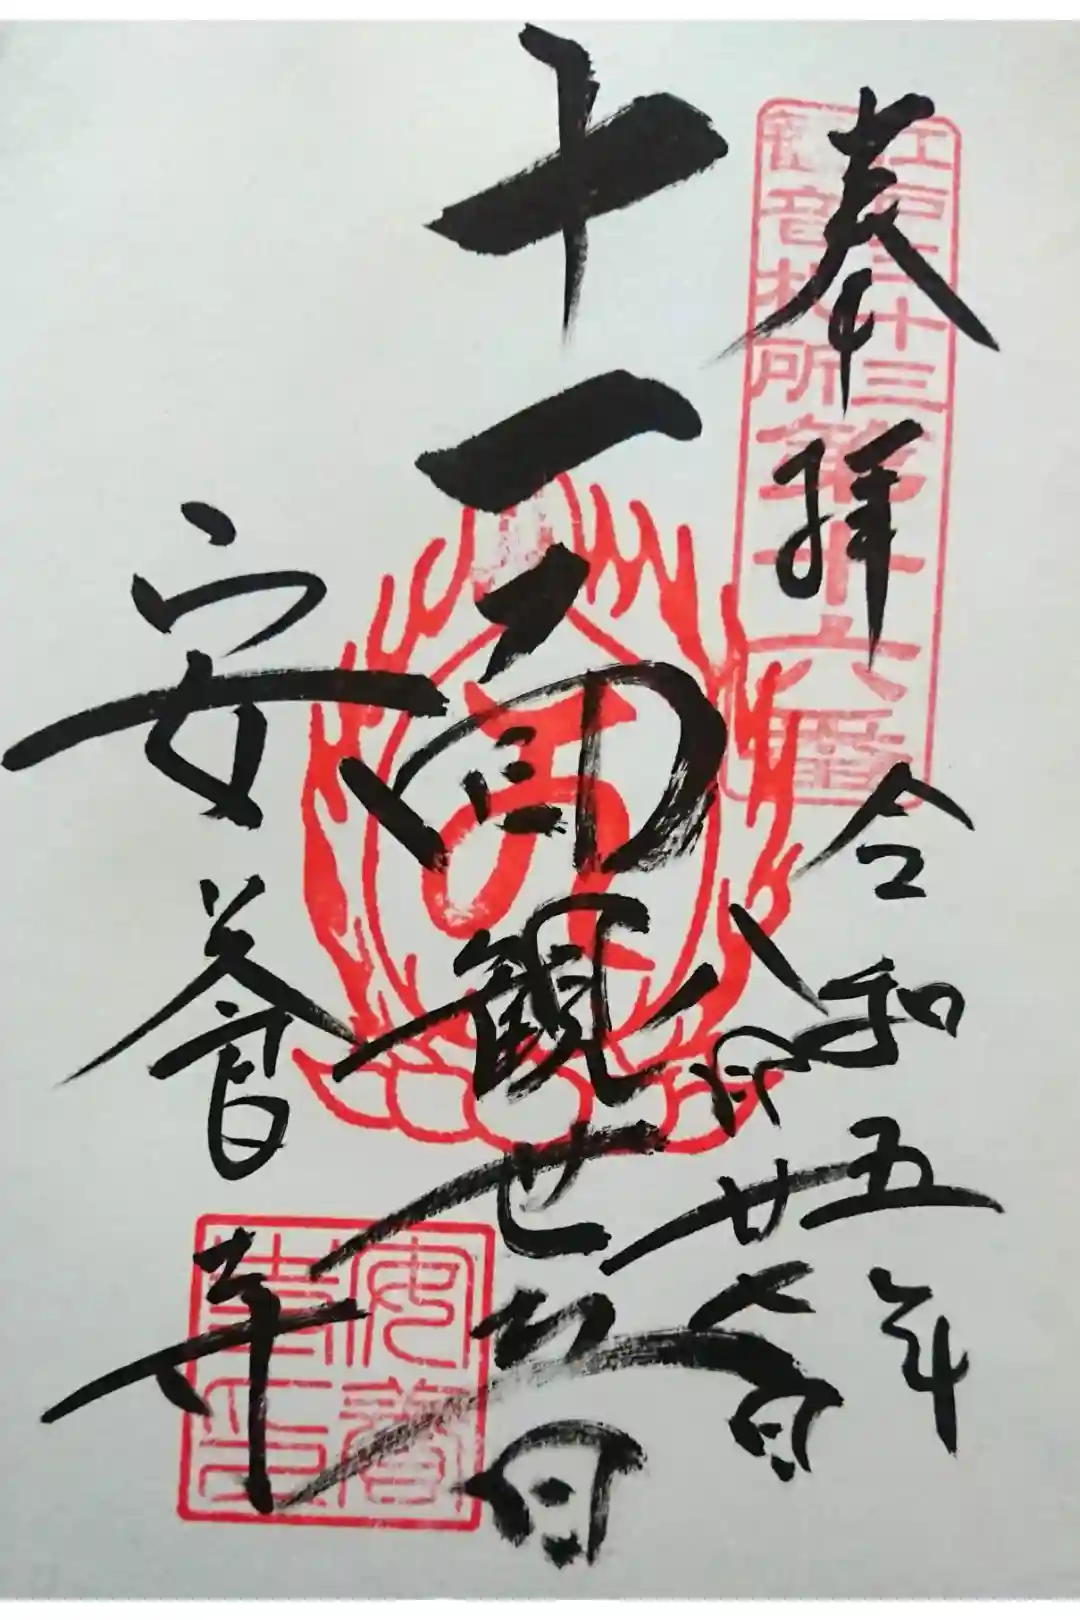 奉拝
令和五年
八月廿六日
江戸三十三
観音札所
第十六番
十一面観世音
安養寺
安養
寺印